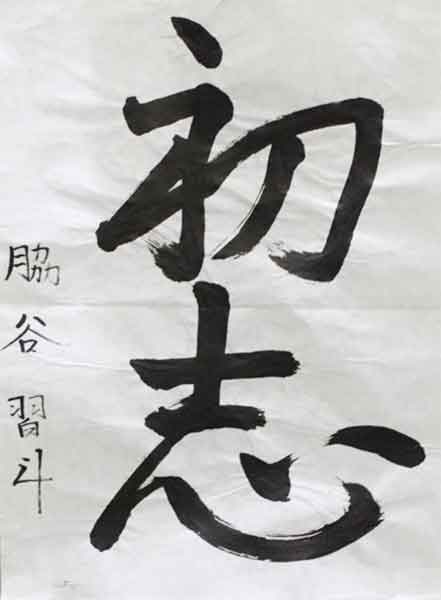 初志
脇谷習斗